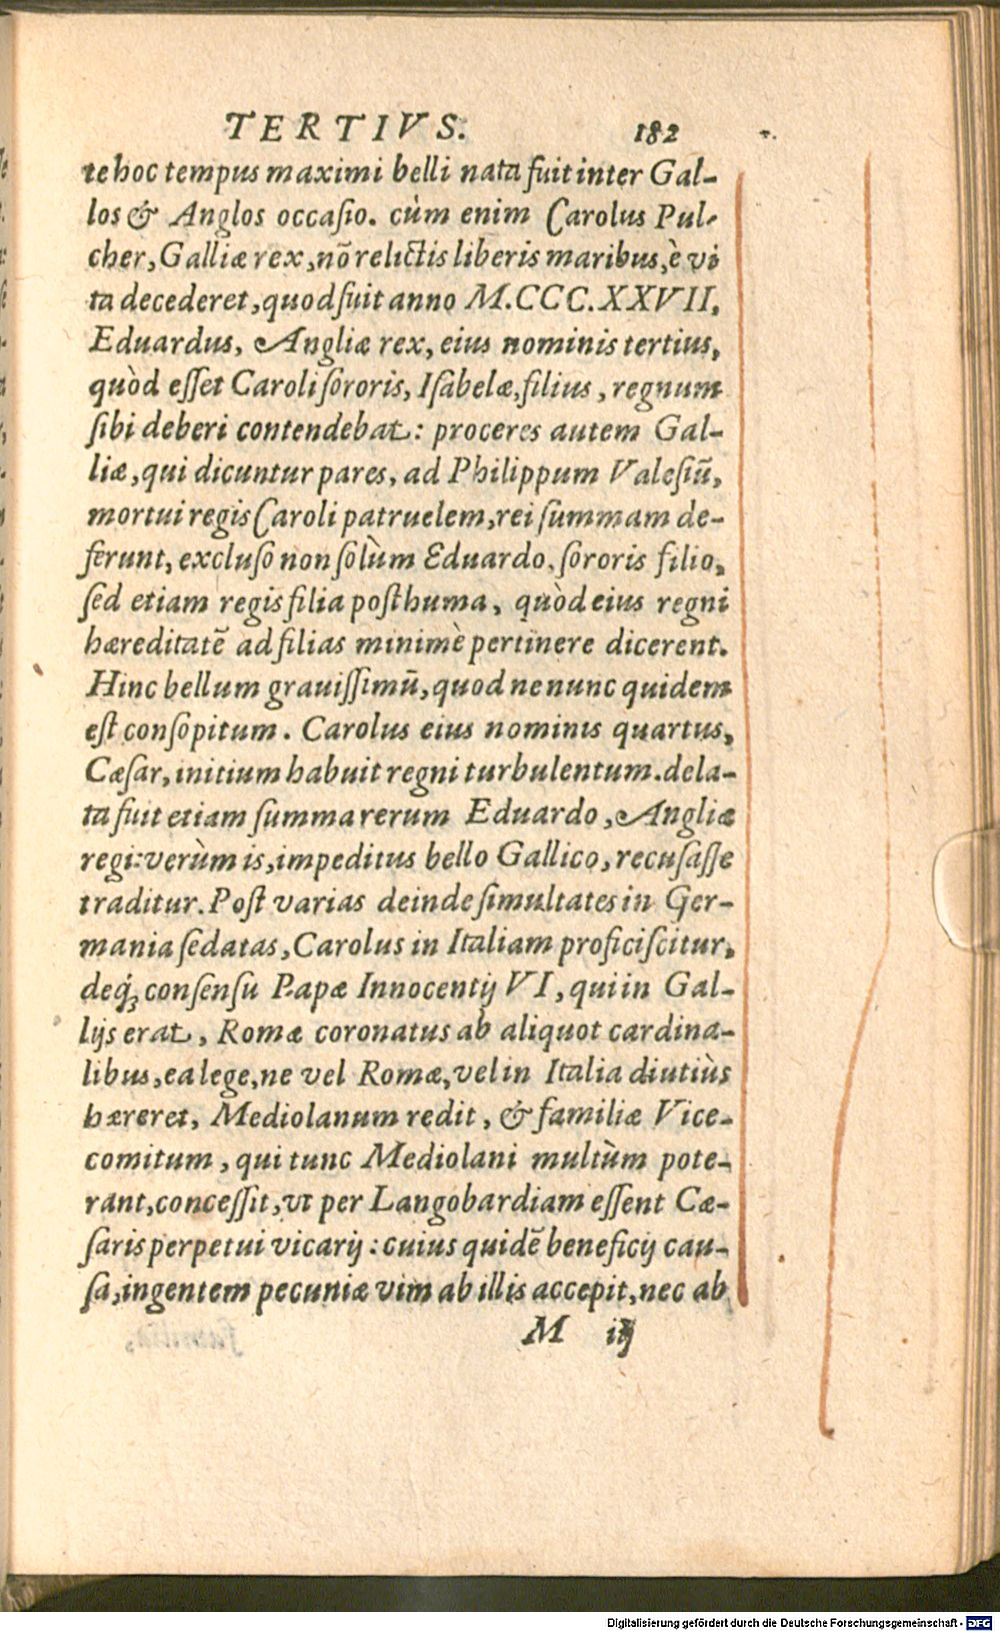 TERTIVS. 182
te hoc tempus maximi belli nata fuit inter Gal-
los & Anglos occasio. cùm enim Carolus Pul-
cher, Galliæ rex, nō relictis liberis maribus, è vi
ta decederet, quod fuit anno M.CCC.XXVII,
Eduardus, Angliæ rex, eius nominis tertius,
quòd esset Caroli sororis, Isabelæ, filius, regnum
sibi deberi contendebat: proceres autem Gal-
liæ, qui dicuntur pares, ad Philippum Valesiū,
mortui regis Caroli patruelem, rei summam de-
ferunt, excluso non solùm Eduardo, sororis filio,
sed etiam regis filia posthuma, quòd eius regni
hæreditatē ad filias minimè pertinere dicerent.
Hinc bellum grauissimū, quod ne nunc quidem
est consopitum. Carolus eius nominis quartus,
Cæsar, initium habuit regni turbulentum. dela-
ta fuit etiam summa rerum Eduardo, Angliæ
regi: verùm is, impeditus bello Gallico, recusasse
traditur. Post varias deinde simultates in Ger-
mania sedatas, Carolus in Italiam proficiscitur,
deq́; consensu Papæ Innocentij VI, qui in Gal-
lijs erat, Romæ coronatus ab aliquot cardina-
libus, ea lege, ne vel Romæ, vel in Italia diutiùs
hæreret, Mediolanum redit, & familiæ Vice-
comitum, qui tunc Mediolani multùm pote-
rant, concessit, vt per Langobardiam essent Cæ-
saris perpetui vicarij: cuius quidē beneficij cau-
sa, ingentem pecuniæ vim ab illis accepit, nec ab
M iij
Digitalisierung gefördert durch die Deutsche Forschungsgemeinschaft - DFG